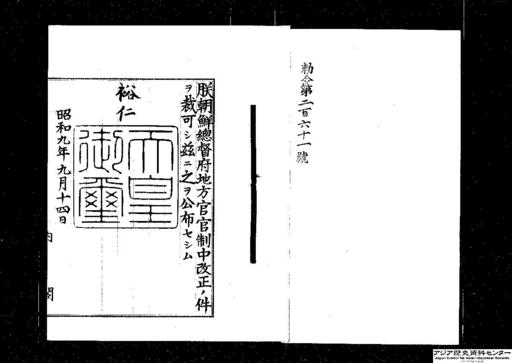 勅令第二百六十一號
朕朝鮮總督府地方官官制中改正ノ件
ヲ裁可シ茲ニ之ヲ公布セシム
裕仁
天皇
御璽
昭和九年九月十四日
内閣
アジア歴史資料センター
Japan Center for Asian Historical Records